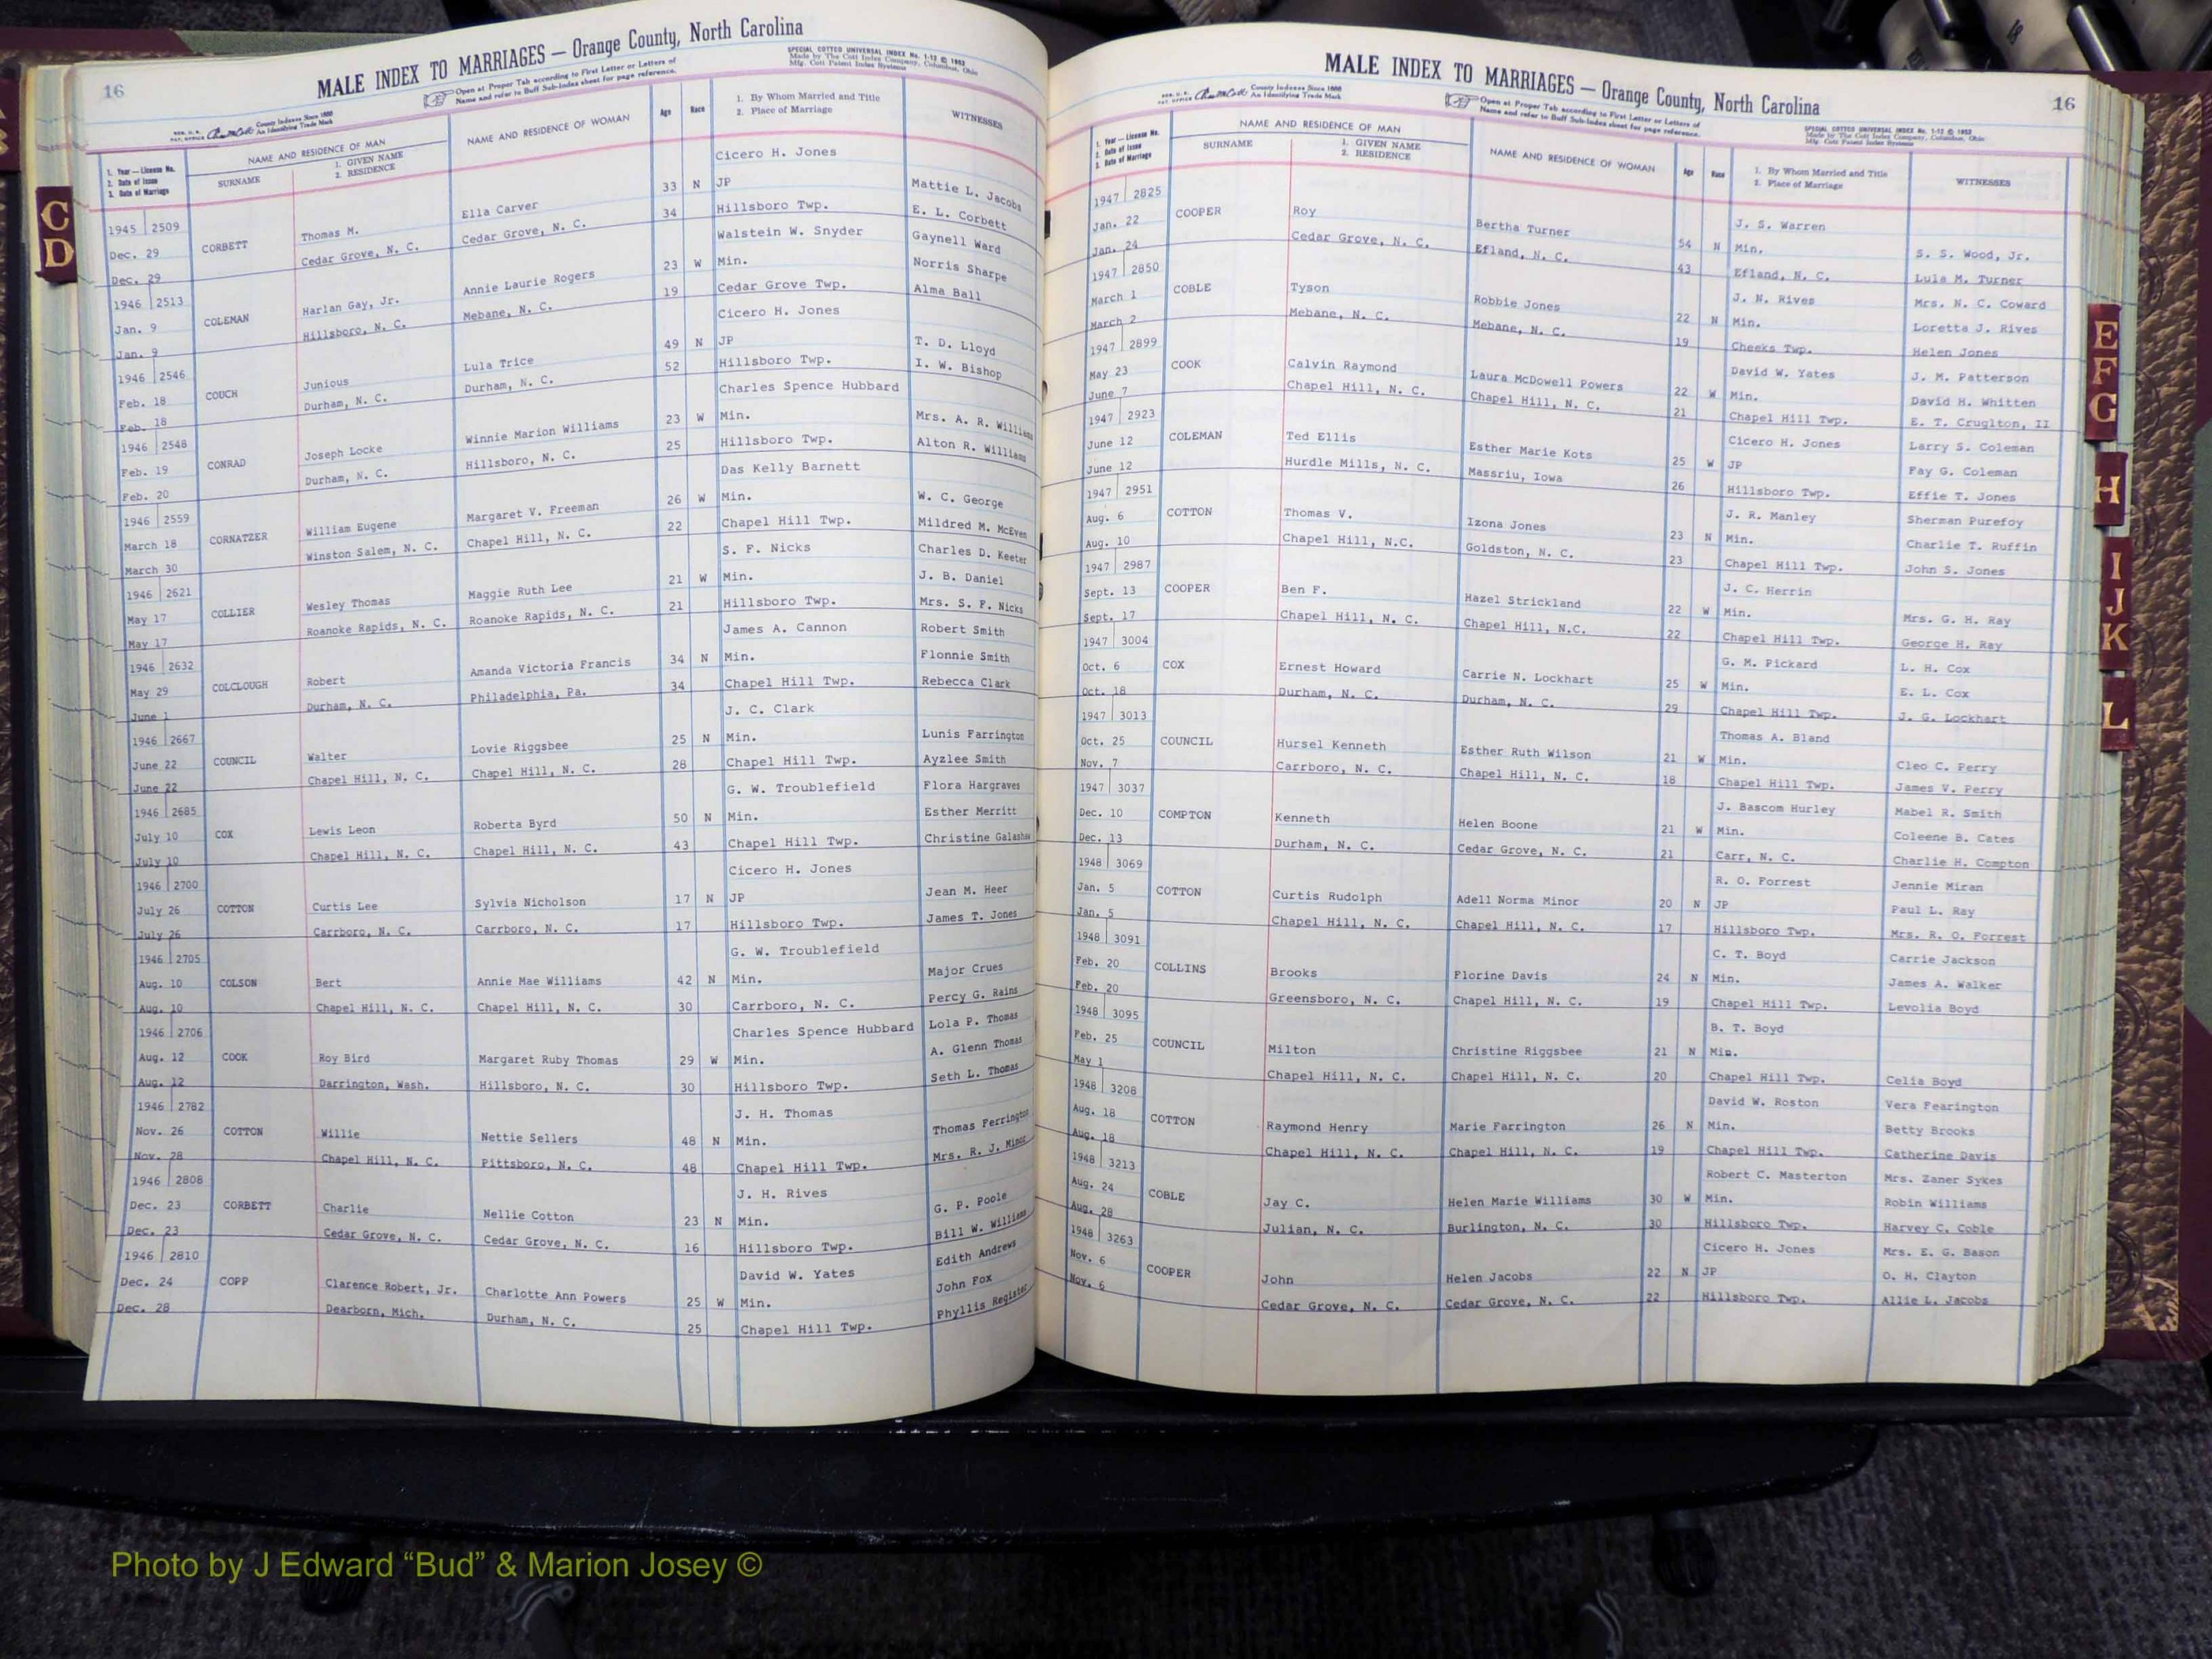 16
MALE INDEX TO MARRIAGES — Orange County, North Carolina
SPECIAL COTTCO UNIVERSAL INDEX No. 1-12 © 1953
Made by The Cott Index Company, Columbus, Ohio
Mfg. Cott Patent Index Systems
Open at Proper Tab according to First Letter or Letters of
Name and refer to Buff Sub-Index sheet for page reference.
County Indexes Since 1888
An Identifying Trade Mark
1. Year — License No.
2. Date of Issue
3. Date of Marriage
NAME AND RESIDENCE OF MAN
SURNAME
1. GIVEN NAME
2. RESIDENCE
NAME AND RESIDENCE OF WOMAN
Age
Race
1. By Whom Married and Title
2. Place of Marriage
WITNESSES
1945 2509 Cicero H. Jones
Dec. 29 CORBETT Thomas M. Ella Carver 33 N JP Mattie L. Jacobs
Dec. 29 Cedar Grove, N. C. Cedar Grove, N. C. 34 Hillsboro Twp. E. L. Corbett
1946 2513 Walstein W. Snyder Gaynell Ward
Jan. 9 COLEMAN Harlan Gay, Jr. Annie Laurie Rogers 23 W Min. Norris Sharpe
Jan. 9 Hillsboro, N. C. Mebane, N. C. 19 Cedar Grove Twp. Alma Ball
1946 2546 Cicero H. Jones
Feb. 18 COUCH Junious Lula Trice 49 N JP T. D. Lloyd
Feb. 18 Durham, N. C. Durham, N. C. 52 Hillsboro Twp. I. W. Bishop
1946 2548 Charles Spence Hubbard
Feb. 19 CONRAD Joseph Locke Winnie Marion Williams 23 W Min. Mrs. A. R. Williams
Feb. 20 Durham, N. C. Hillsboro, N. C. 25 Hillsboro Twp. Alton R. Williams
1946 2559 Das Kelly Barnett
March 18 CORNATZER William Eugene Margaret V. Freeman 26 W Min. W. C. George
March 30 Winston Salem, N. C. Chapel Hill, N. C. 22 Chapel Hill Twp. Mildred M. McEven
1946 2621 S. F. Nicks Charles D. Keeter
May 17 COLLIER Wesley Thomas Maggie Ruth Lee 21 W Min. J. B. Daniel
May 17 Roanoke Rapids, N. C. Roanoke Rapids, N. C. 21 Hillsboro Twp. Mrs. S. F. Nicks
1946 2632 James A. Cannon Robert Smith
May 29 COLCLOUGH Robert Amanda Victoria Francis 34 N Min. Flonnie Smith
June 1 Durham, N. C. Philadelphia, Pa. 34 Chapel Hill Twp. Rebecca Clark
1946 2667 J. C. Clark
June 22 COUNCIL Walter Lovie Riggsbee 25 N Min. Lunis Farrington
June 22 Chapel Hill, N. C. Chapel Hill, N. C. 28 Chapel Hill Twp. Ayzlee Smith
1946 2685 G. W. Troublefield Flora Hargraves
July 10 COX Lewis Leon Roberta Byrd 50 N Min. Esther Merritt
July 10 Chapel Hill, N. C. Chapel Hill, N. C. 43 Chapel Hill Twp. Christine
1946 2700 Cicero H. Jones
July 26 COTTON Curtis Lee Sylvia Nicholson 17 N JP Jean M. Heer
July 26 Carrboro, N. C. Carrboro, N. C. 17 Hillsboro Twp. James T. Jones
1946 2705 G. W. Troublefield
Aug. 10 COLSON Bert Annie Mae Williams 42 N Min. Major Crues
Aug. 10 Chapel Hill, N. C. Chapel Hill, N. C. 30 Carrboro, N. C. Percy G. Rains
1946 2706 Charles Spence Hubbard Lola P. Thomas
Aug. 12 COOK Roy Bird Margaret Ruby Thomas 29 W Min. A. Glenn Thomas
Aug. 12 Darrington, Wash. Hillsboro, N. C. 30 Hillsboro Twp. Seth L. Thomas
1946 2782 J. H. Thomas
Nov. 26 COTTON Willie Nettie Sellers 48 N Min. Thomas Ferrington
Nov. 28 Chapel Hill, N. C. Pittsboro, N. C. 48 Chapel Hill Twp. Mrs. R. J. Minor
1946 2808 J. H. Rives
Dec. 23 CORBETT Charlie Nellie Cotton 23 N Min. G. P. Poole
Dec. 23 Cedar Grove, N. C. Cedar Grove, N. C. 16 Hillsboro Twp. Bill W. Williams
1946 2810 David W. Yates Edith Andrews
Dec. 24 COPP Clarence Robert, Jr. Charlotte Ann Powers 25 W Min. John Fox
Dec. 28 Dearborn, Mich. Durham, N. C. 25 Chapel Hill Twp. Phyllis Register
MALE INDEX TO MARRIAGES — Orange County, North Carolina
16
County Indexes Since 1888
An Identifying Trade Mark
Open at Proper Tab according to First Letter or Letters of
Name and refer to Buff Sub-Index sheet for page reference.
SPECIAL COTTCO UNIVERSAL INDEX No. 1-12 © 1953
Made by The Cott Index Company, Columbus, Ohio
Mfg. Cott Patent Index Systems
1. Year — License No.
2. Date of Issue
3. Date of Marriage
NAME AND RESIDENCE OF MAN
SURNAME
1. GIVEN NAME
2. RESIDENCE
NAME AND RESIDENCE OF WOMAN
Age
Race
1. By Whom Married and Title
2. Place of Marriage
WITNESSES
1947 2825 J. S. Warren
Jan. 22 COOPER Roy Bertha Turner 54 N Min. S. S. Wood, Jr.
Jan. 24 Cedar Grove, N. C. Efland, N. C. 43 Efland, N. C. Lula M. Turner
1947 2850 J. N. Rives Mrs. N. C. Coward
March 1 COBLE Tyson Robbie Jones 22 N Min. Loretta J. Rives
March 2 Mebane, N. C. Mebane, N. C. 19 Cheeks Twp. Helen Jones
1947 2899 David W. Yates J. M. Patterson
May 23 COOK Calvin Raymond Laura McDowell Powers 22 W Min. David H. Whitten
June 7 Chapel Hill, N. C. Chapel Hill, N. C. 21 Chapel Hill Twp. E. T. Cruglton, II
1947 2923 Cicero H. Jones Larry S. Coleman
June 12 COLEMAN Ted Ellis Esther Marie Kots 25 W JP Fay G. Coleman
June 12 Hurdle Mills, N. C. Massriu, Iowa 26 Hillsboro Twp. Effie T. Jones
1947 2951 J. R. Manley Sherman Purefoy
Aug. 6 COTTON Thomas V. Izona Jones 23 N Min. Charlie T. Ruffin
Aug. 10 Chapel Hill, N.C. Goldston, N. C. 23 Chapel Hill Twp. John S. Jones
1947 2987 J. C. Herrin
Sept. 13 COOPER Ben F. Hazel Strickland 22 W Min. Mrs. G. H. Ray
Sept. 17 Chapel Hill, N. C. Chapel Hill, N.C. 22 Chapel Hill Twp. George H. Ray
1947 3004 G. M. Pickard L. H. Cox
Oct. 6 COX Ernest Howard Carrie N. Lockhart 25 W Min. E. L. Cox
Oct. 18 Durham, N. C. Durham, N. C. 29 Chapel Hill Twp. J. G. Lockhart
1947 3013 Thomas A. Bland
Oct. 25 COUNCIL Hursel Kenneth Esther Ruth Wilson 21 W Min. Cleo C. Perry
Nov. 7 Carrboro, N. C. Chapel Hill, N. C. 18 Chapel Hill Twp. James V. Perry
1947 3037 J. Bascom Hurley Mabel R. Smith
Dec. 10 COMPTON Kenneth Helen Boone 21 W Min. Coleene B. Cates
Dec. 13 Durham, N. C. Cedar Grove, N. C. 21 Carr, N. C. Charlie H. Compton
1948 3069 R. O. Forrest Jennie Miran
Jan. 5 COTTON Curtis Rudolph Adell Norma Minor 20 N JP Paul L. Ray
Jan. 5 Chapel Hill, N. C. Chapel Hill, N. C. 17 Hillsboro Twp. Mrs. R. O. Forrest
1948 3091 C. T. Boyd Carrie Jackson
Feb. 20 COLLINS Brooks Florine Davis 24 N Min. James A. Walker
Feb. 20 Greensboro, N. C. Chapel Hill, N. C. 19 Chapel Hill Twp. Levolia Boyd
1948 3095 B. T. Boyd
Feb. 25 COUNCIL Milton Christine Riggsbee 21 N Min.
May 1 Chapel Hill, N. C. Chapel Hill, N. C. 20 Chapel Hill Twp. Celia Boyd
1948 3208 David W. Roston Vera Fearington
Aug. 18 COTTON Raymond Henry Marie Farrington 26 N Min. Betty Brooks
Aug. 18 Chapel Hill, N. C. Chapel Hill, N. C. 19 Chapel Hill Twp. Catherine Davis
1948 3213 Robert C. Masterton Mrs. Zaner Sykes
Aug. 24 COBLE Jay C. Helen Marie Williams 30 W Min. Robin Williams
Aug. 28 Julian, N. C. Burlington, N. C. 30 Hillsboro Twp. Harvey C. Coble
1948 3263 Cicero H. Jones Mrs. E. G. Bason
Nov. 6 COOPER John Helen Jacobs 22 N JP O. H. Clayton
Nov. 6 Cedar Grove, N. C. Cedar Grove, N. C. 22 Hillsboro Twp. Allie L. Jacobs
C
D
E
F
G
H
I
J
K
L
Photo by J Edward “Bud” & Marion Josey ©